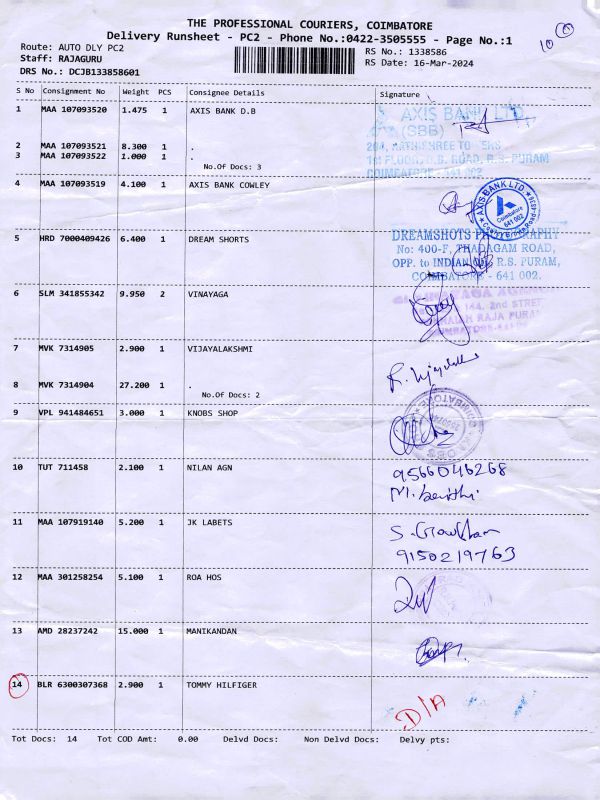 THE PROFESSIONAL COURIERS, COIMBATORE
Delivery Runsheet - PC2 - Phone No.:0422-3505555 - Page No.:1
10
Route: AUTO DLY PC2
RS No.: 1338586
Staff: RAJAGURU
RS Date: 16-Mar-2024
DRS No.: DCJB133858601
S No Consignment No Weight PCS Consignee Details Signature
1 MAA 107093520 1.475 1 AXIS BANK D.B
AXIS BANK LTD.
(SBB)
2 MAA 107093521 8.300 1 .
3 MAA 107093522 1.000 1 .
1st FLOOR, D.B. ROAD, R.S. PURAM
No.Of Docs: 3
COIMBATORE - 641 002.
4 MAA 107093519 4.100 1 AXIS BANK COWLEY
AXIS BANK LTD.
Coimbatore
641 002
5 HRD 7000409426 6.400 1 DREAM SHORTS
DREAMSHOTS PHOTOGRAPHY
No: 400-F, THADAGAM ROAD,
OPP. to INDIAN R.S. PURAM,
COIMBATORE - 641 002.
6 SLM 341855342 9.950 2 VINAYAGA
144, 2nd STREET
7 MVK 7314905 2.900 1 VIJAYALAKSHMI
8 MVK 7314904 27.200 1 .
No.Of Docs: 2
9 VPL 941484651 3.000 1 KNOBS SHOP
10 TUT 711458 2.100 1 NILAN AGN
9566046268
11 MAA 107919140 5.200 1 JK LABETS
9150219763
12 MAA 301258254 5.100 1 ROA HOS
13 AMD 28237242 15.000 1 MANIKANDAN
14 BLR 6300307368 2.900 1 TOMMY HILFIGER
D/A
Tot Docs: 14 Tot COD Amt: 0.00 Delvd Docs: Non Delvd Docs: Delvy pts: